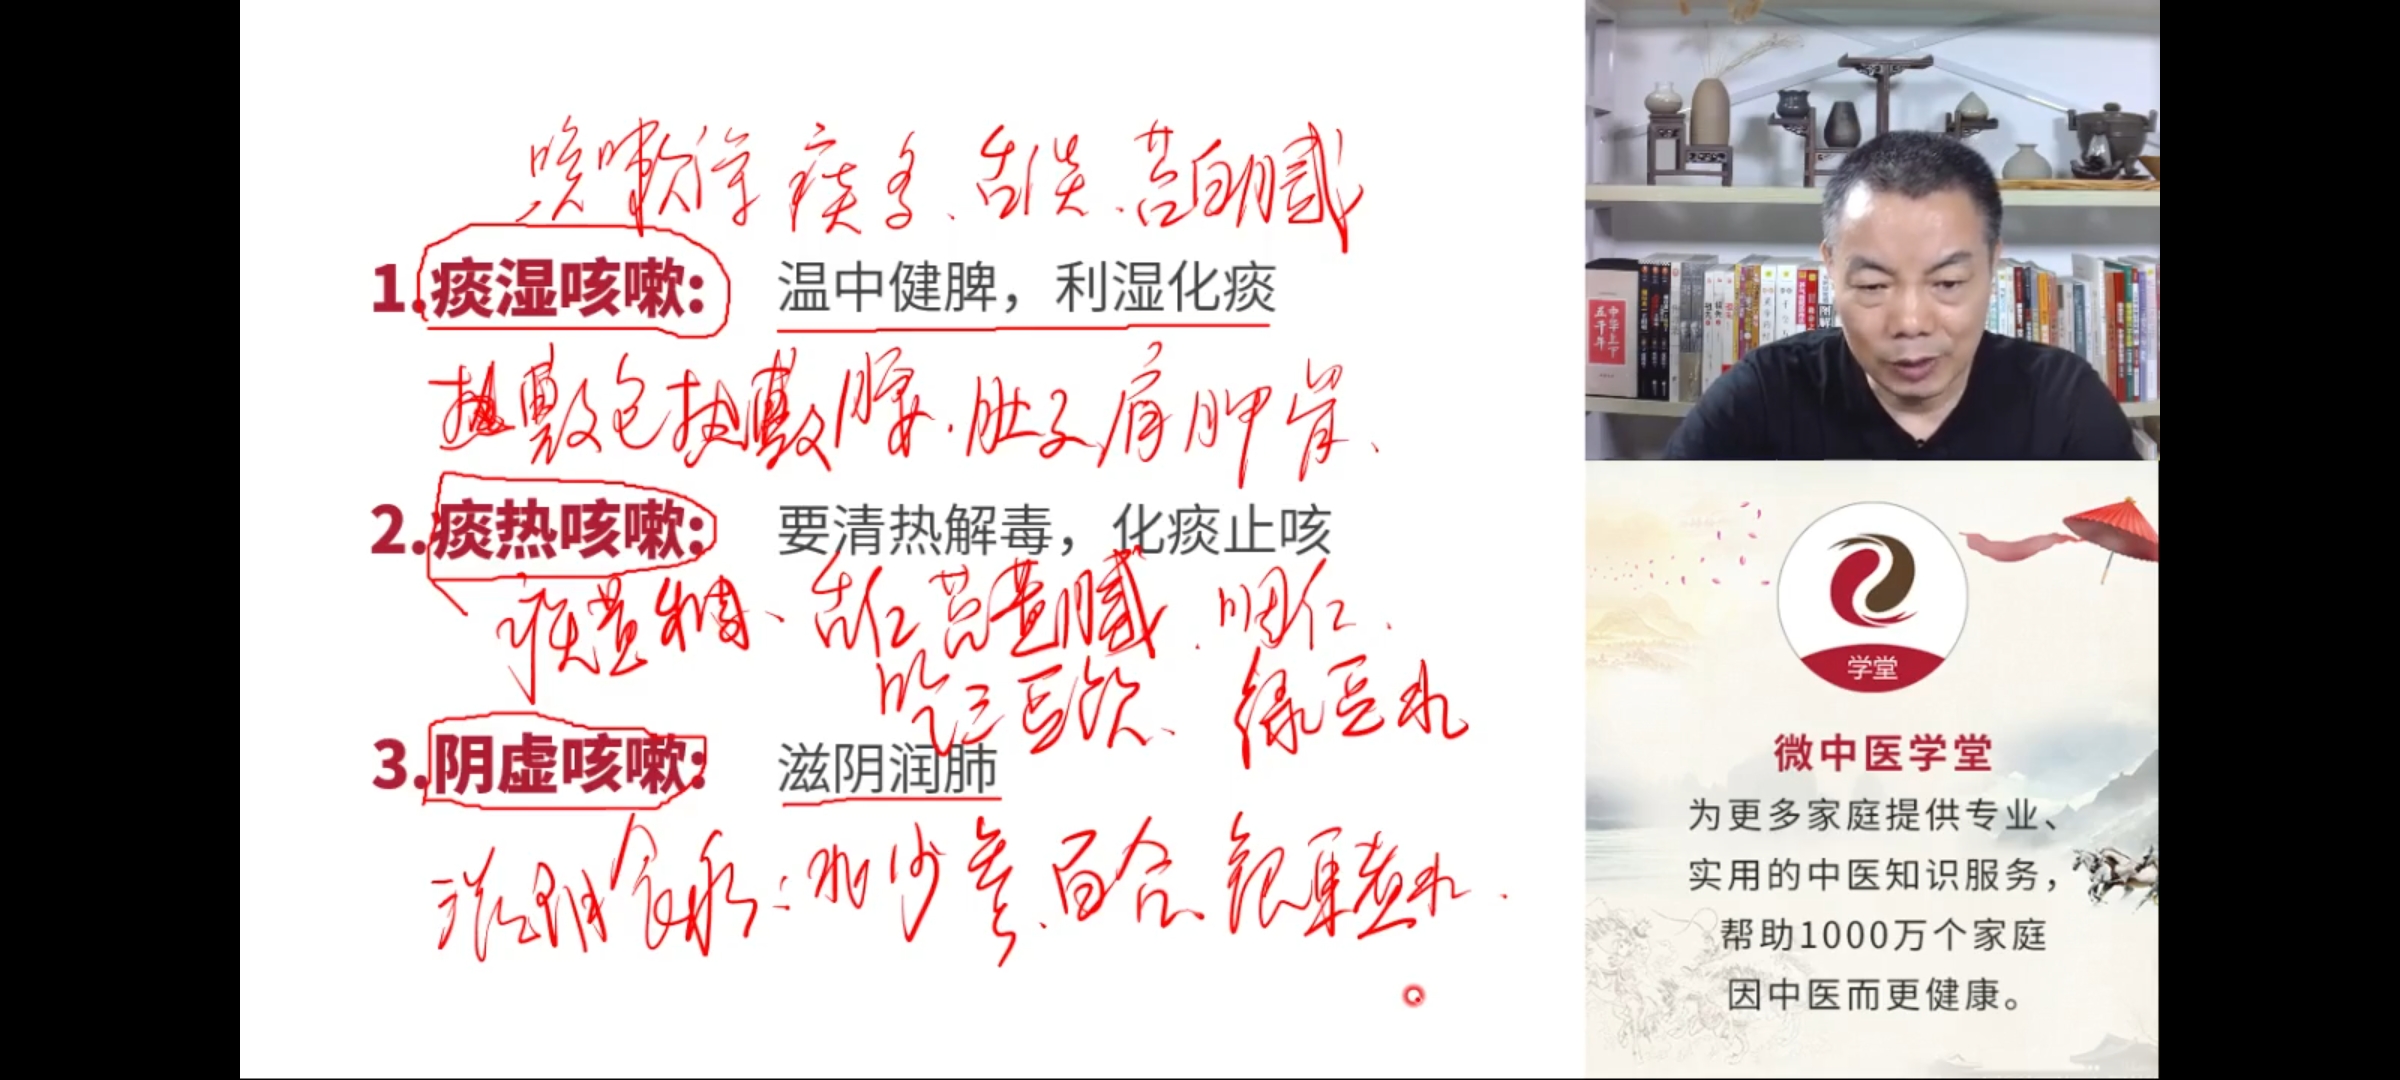 咳嗽 痰多、舌淡、苔白腻
1.痰湿咳嗽： 温中健脾，利湿化痰
热敷包热敷腰、肚子、肩胛骨、
2.痰热咳嗽： 要清热解毒，化痰止咳
痰黄稠、舌红苔黄腻、咽红、
吃三豆饮、绿豆水
3.阴虚咳嗽： 滋阴润肺
滋阴食疗：北沙参、百合、银耳煮水、
中华上下五千年
学堂
微中医学堂
为更多家庭提供专业、
实用的中医知识服务，
帮助1000万个家庭
因中医而更健康。